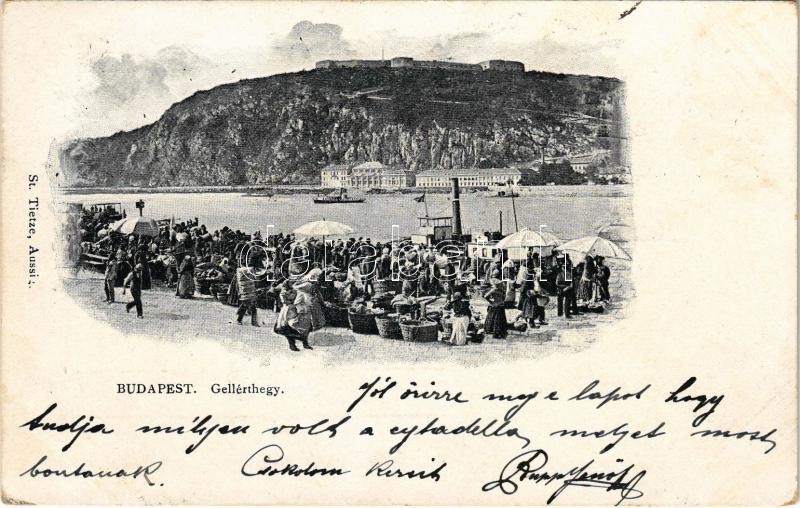 St. Tietze, Aussig.
delcampe.net
BUDAPEST. Gellérthegy.
Jól őrizze meg e lapot hogy
tudja milyen volt a cytadella, melyet most
bontanak. Csokolom Kezsit
Rupp Jenő